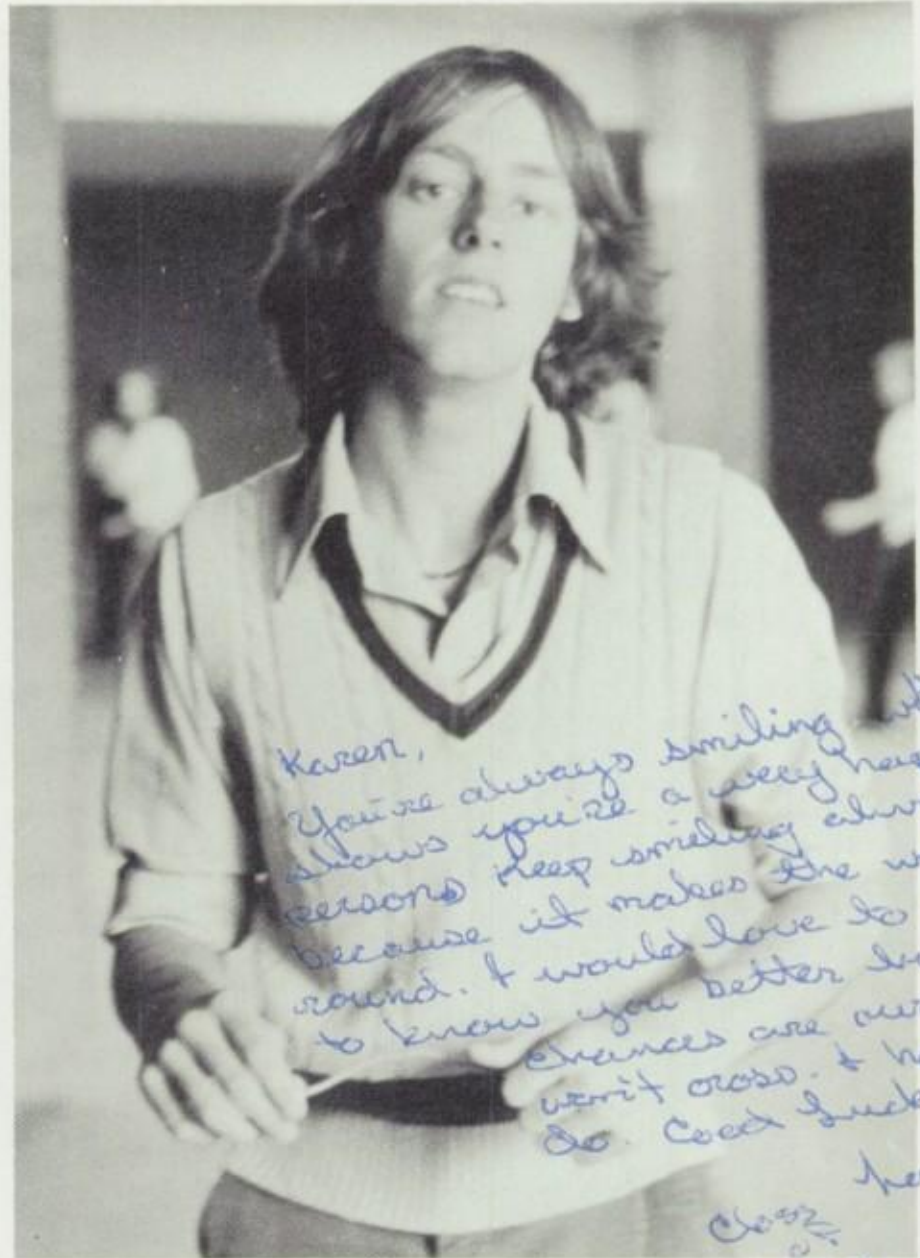 Karen,
You're always smiling
shows you're a very
persons keep smiling
because it makes the
round. I would love to
to know you better
chances are
won't cross. I
do. Good Luck